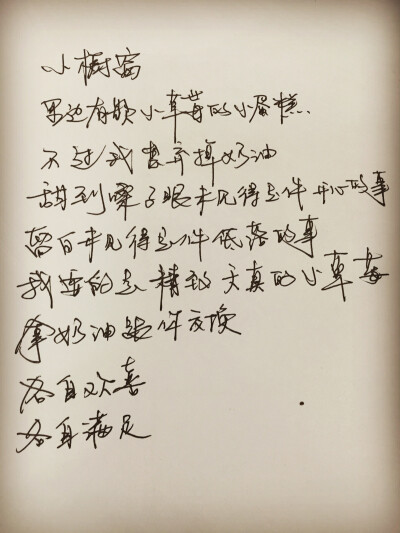 小橱窗
里边有颗小草莓的小蛋糕
不过我昔弃掉奶油
甜到嗓子眼未见得是件开心的事
留白未见得是件低落的事
我要的是精致天真的小草莓
拿奶油跟你交换
各自欢喜
各自满足